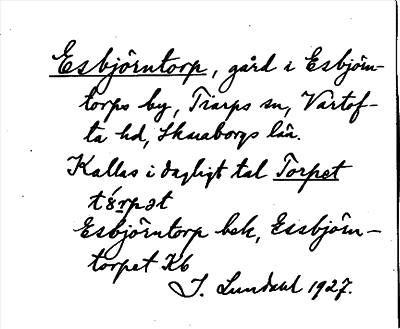 Esbjörntorp, gård i Esbjörn-
torps by, Tiarps sn, Vartof-
ta hd, Skaraborgs län.
Kallas i dagligt tal Torpet
Esbjörntorp bek, Essbjörn-
torpet Kb
J. Lundahl 1927.